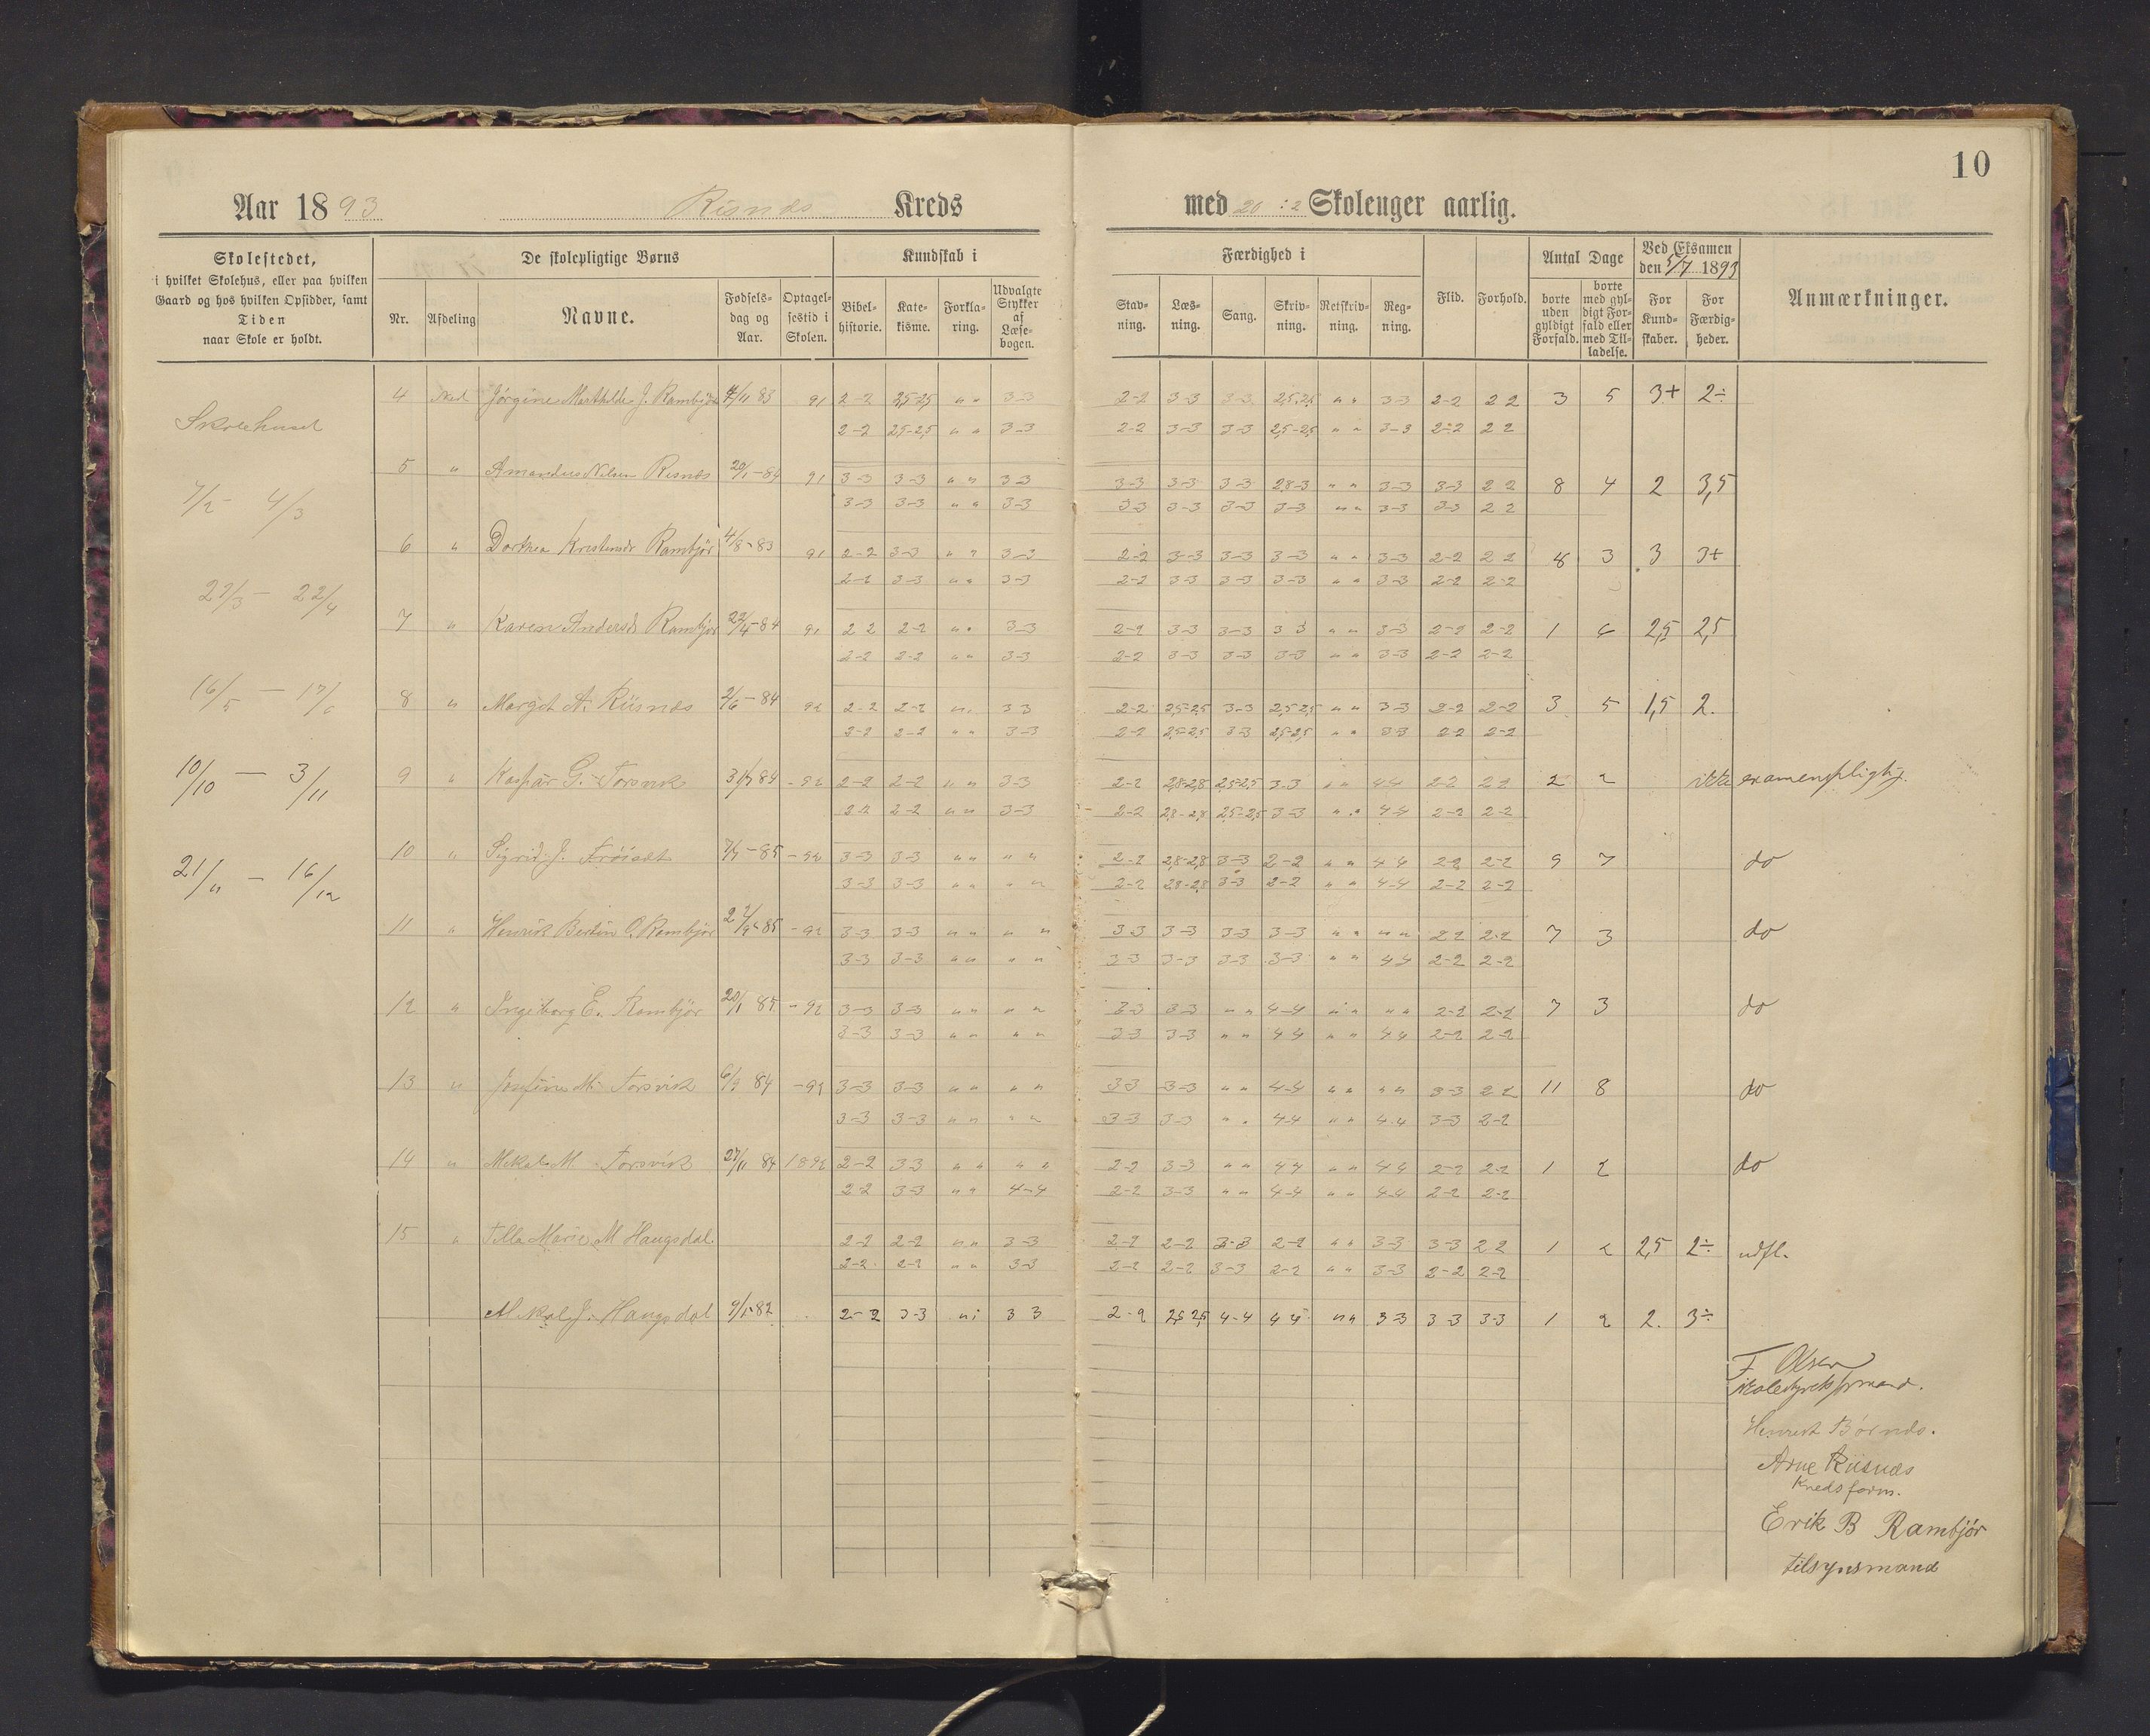 10
Aar 1893 Risnes Kreds med 20 : 2 Skoleuger aarlig.
Skolestedet, i hvilket Skolehus, eller paa hvilken Gaard og hos hvilken Opsidder, samt Tiden naar Skole er holdt.
De skolepligtige Børns
Nr. Afdeling Navne. Fødsels-dag og Aar. Optagel-sestid i Skolen.
Kundskab i
Bibel-historie. Kate-kisme. Forkla-ring. Udvalgte Stykker af Læse-bogen.
Færdighed i
Stav-ning. Læs-ning. Sang. Skriv-ning. Retskriv-ning. Reg-ning.
Flid. Forhold.
Antal Dage
borte uden gyldigt Forfald. borte med gyl-digt For-fald eller med Til-ladelse.
Ved Eksamen den 5/7 1893
For Kund-skaber. For Færdig-heder.
Anmærkninger.
Skolehuset
7/2 - 4/3
22/4
16/5 - 17/6
10/10 - 3/11
21/11 - 16/12
4 Ned Jørgine J. Rambjør 83 91 2-2 2,5-2,5 " " 3-3 2-2 3-3 3-3 2,5-2,5 " " 3-3 2-2 2 2 3 5 3+ 2÷
2-2 2,5-2,5 " " 3-3 2-2 3-3 3-3 2,5-2,5 " " 3-3 2-2 2 2
5 " Amandus Nilsen Risnes 20/1-84 91 3-3 3-3 " " 3-3 3-3 3-3 3-3 2,8-3 " " 3-3 3-3 2 2 8 4 2 3,5
3-3 3-3 " " 3-3 3-3 3-3 3-3 3-3 " " 3-3 3-3 2 2
6 " Dorthea Rambjør 4/8-83 91 2-2 3-3 " " 3-3 2-2 3-3 3-3 3-3 " " 3-3 2-2 2 2 8 3 3 3+
2-2 3-3 " " 3-3 2-2 3-3 3-3 3-3 " " 3-3 2-2 2-2
7 " Karen Andersd Rambjør 22/4-84 91 2 2 2-2 " " 3-3 2-2 3-3 3-3 3 3 " " 3-3 2-2 2-2 1 6 2,5 2,5
2-2 2-2 " " 3-3 2-2 3-3 3-3 3-3 " " 3-3 2-2 2-2
8 " Marget A. Riisnæs 2/6-84 92 2-2 2-2 " " 3 3 2-2 2,5-2,5 3-3 2,5-2,5 " " 3-3 2-2 2-2 3 5 1,5 2.
2-2 2-2 " " 3-3 2-2 2,5-2,5 3-3 2,5-2,5 " " 3-3 2-2 2-2
9 " Kaspar G. Torsvik 84 -92 2-2 2-2 " " 3-3 2-2 2,8-2,8 2,5-2,5 3-3 " " 4-4 2-2 2 2 2 2 ikke examenspligtig.
2-2 2-2 " " 3-3 2-2 2,8-2,8 2,5-2,5 3-3 " " 4-4 2-2 2-2
10 " Sigrid J. Frøiset 7/7-85 -92 3-3 3-3 " " " " 2-2 2,8-2,8 3-3 2-2 " " 4 4 2-2 2-2 9 7 do
3-3 3-3 " " " " 2-2 2,8-2,8 3-3 2-2 " " 4-4 2-2 2-2
11 " Henrik Bertin O. Rambjør 85 -92 3-3 3-3 " " " " 3-3 3-3 3-3 3-3 " " " " 2 2 2-2 7 3 do
3-3 3-3 " " " " 3-3 3-3 3-3 3-3 " " 4 4 2-2 2-2
12 " Ingeborg E. Rambjør 20/1 85 -92 3-3 3-3 " " " " 3-3 3-3 " " 4-4 " " " " 2-2 2-2 7 3 do
3-3 3-3 " " " " 3-3 3-3 " " 4 4 " " 4 4 2-2 2-2
13 " Josefine M. Torsvik 6/9 84 -92 3-3 3-3 " " " " 3-3 3-3 " " 4-4 " " " " 3-3 2 2 11 8 do
3-3 3-3 " " " " 3-3 3-3 " " 4-4 " " 4 4 3-3 2-2
14 " Mikal M. Torsvik 27/11 84 1892 2-2 3 3 " " " " 2-2 3-3 " " 4 4 " " 4 4 2-2 2 2 1 2 do
2-2 3-3 " " 4-4 2-2 3-3 " " 4-4 " " 4-4 2-2 2-2
15 " Tilla Marie M Haugsdal. 2-2 2-2 " " 3-3 2-2 2-2 3-3 2-2 " " 3-3 3-3 2 2 1 2 2,5 2÷ udfl.
2-2 2-2 " " 3-3 2-2 2-2 3-3 2-2 " " 3-3 2-2 2-2
Mikal J. Haugsdal 9/1-82 2-2 3-3 " " 3 3 2-2 2,5 2,5 4-4 4 4 " " 3-3 3-3 3-3 1 2 2. 3÷
F Olsen
skolestyrets formand.
Arne Riisnæs
Kredsform.
Erik B Rambjør
tilsynsmand